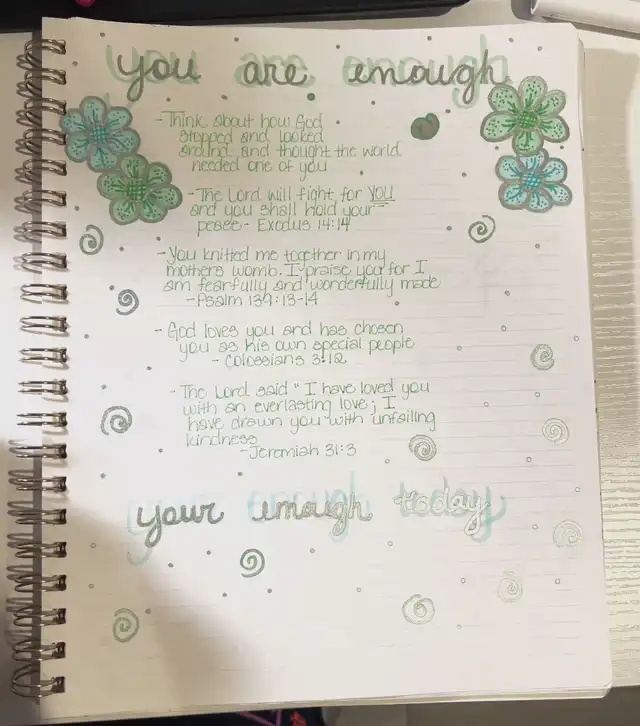 you are enough
- Think about how God
stopped and looked
around and thought the world
needed one of you
- The Lord will fight for YOU
and you shall hold your
peace - Exodus 14:14
- You knitted me together in my
mothers womb. I praise you for I
am fearfully and wonderfully made
- Psalm 139:13-14
- God loves you and has chosen
you as his own special people
- Colossians 3:12
- The Lord said " I have loved you
with an everlasting love; I
have drawn you with unfailing
kindness
- Jeremiah 31:3
your enough today